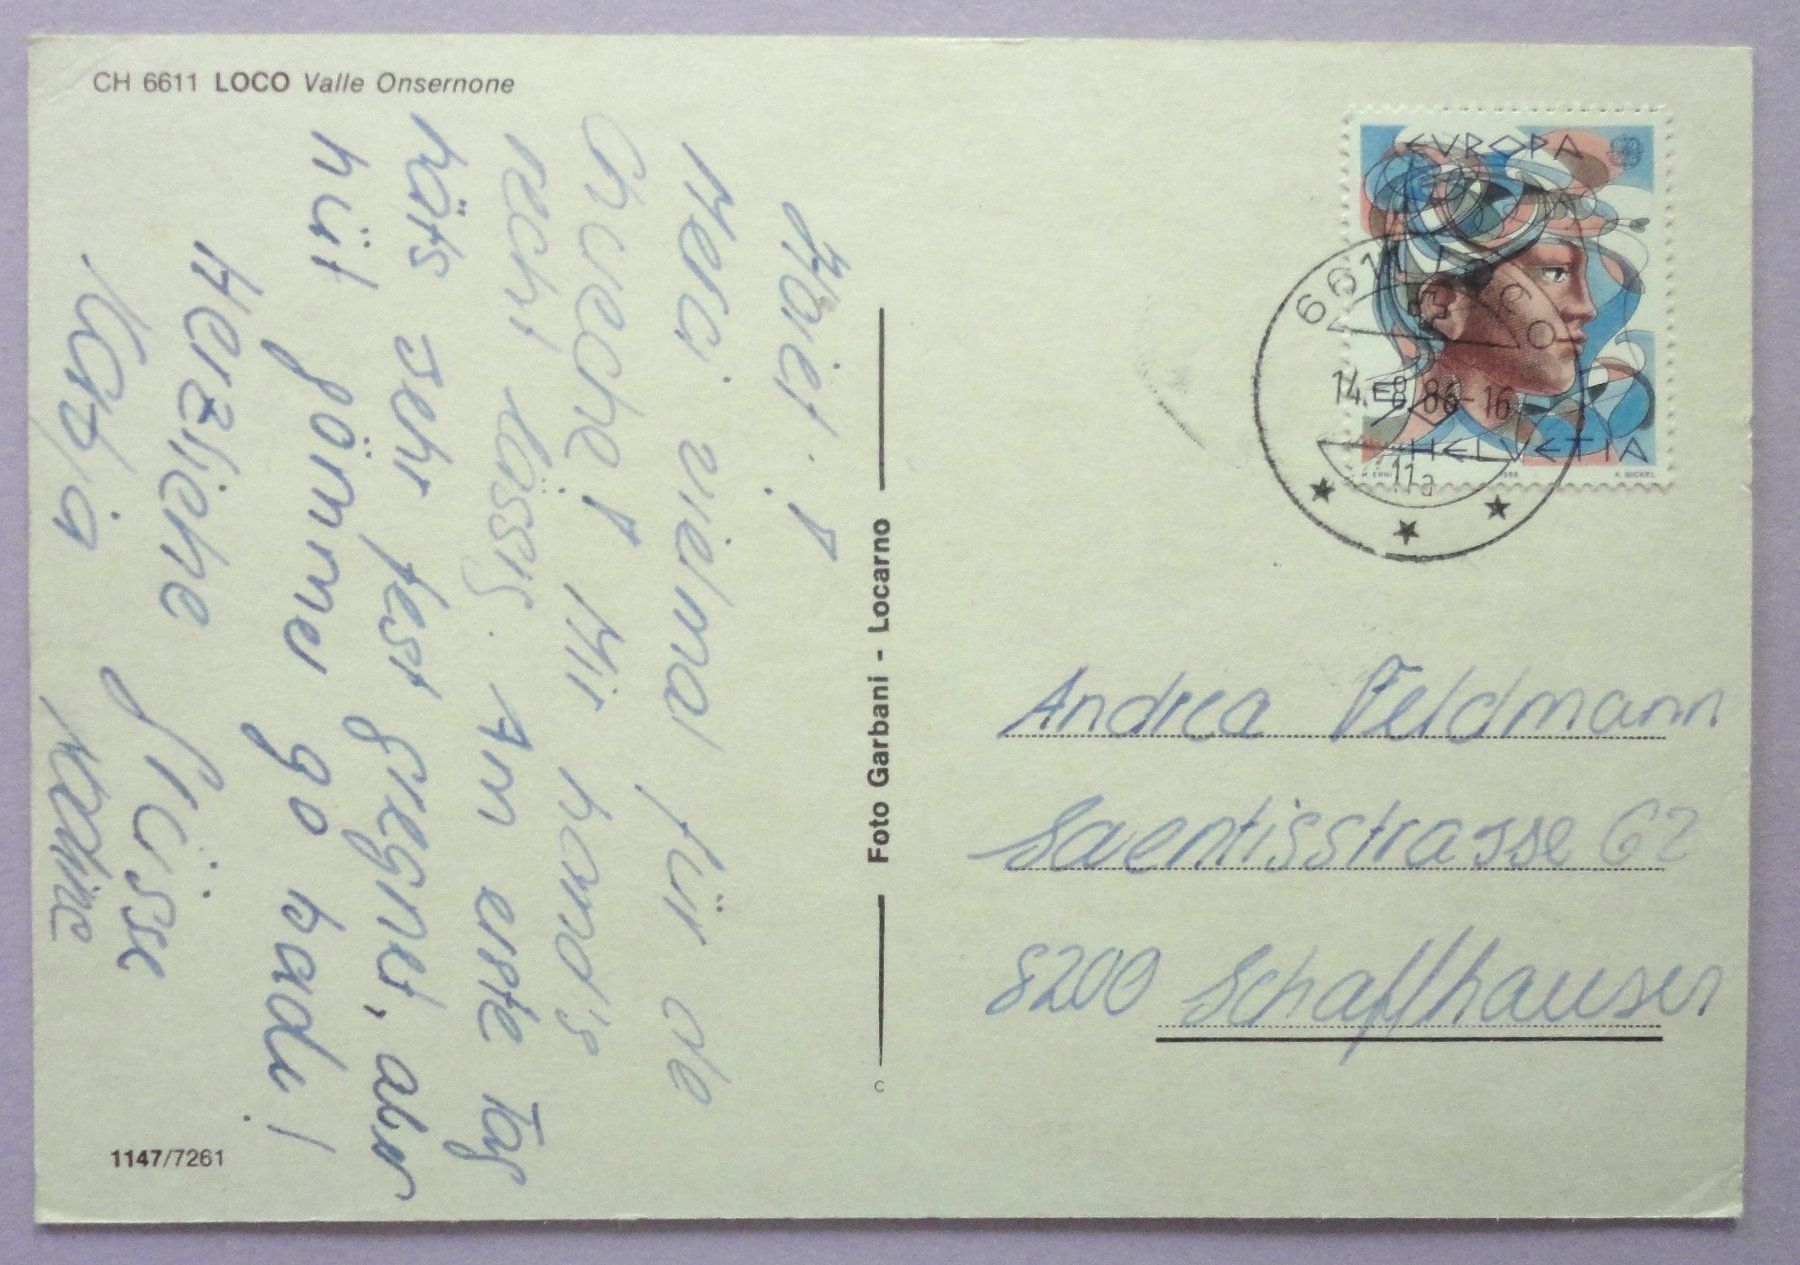 CH 6611 LOCO Valle Onsernone
Hoi!
Merci vielmal für de
Chueche! Mir händ's
recht lässig. Am erste Tag
häts sehr fest gregnet, aber
hüt gömmer go badi!
Herzliche Grüsse
Katja Nadine
Foto Garbani - Locarno
C
1147/7261
EVROPA
HELVETIA
H. ERNI 1986 K. BICKEL
6611 LOCO
14.-8.86-16
11a
Andrea Feldmann
Saentisstrasse 62
8200 Schaffhausen